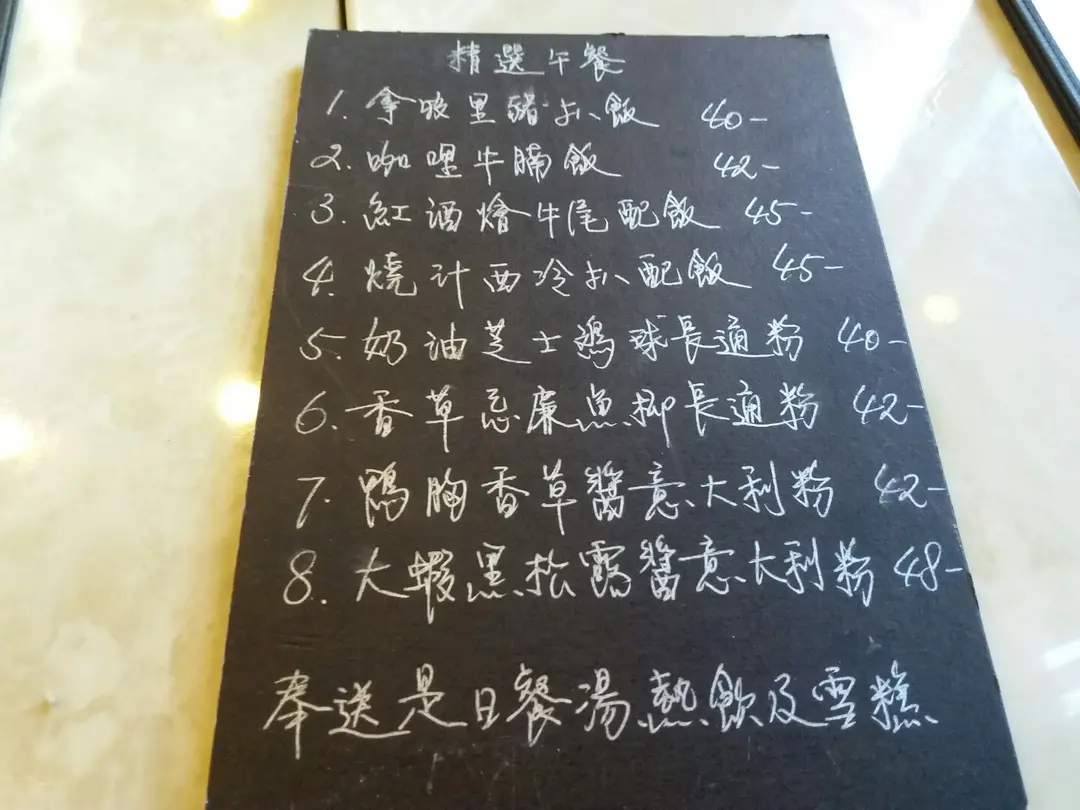 精選午餐
1. 拿破里豬扒飯 40-
2. 咖喱牛腩飯 42-
3. 紅酒燴牛尾配飯 45-
4. 燒汁西冷扒配飯 45-
5. 奶油芝士鷄球長通粉 40-
6. 香草忌廉魚柳長通粉 42-
7. 鴨胸香草醬意大利粉 42-
8. 大蝦黑松露醬意大利粉 48-
奉送是日餐湯熱飲及雪糕